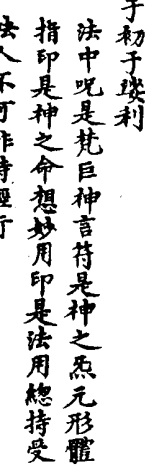 于初于璨利
法中呪是梵巨神言符是神之炁元形體
指印是神之命想妙用印是法用總持受
法人不可作時經行